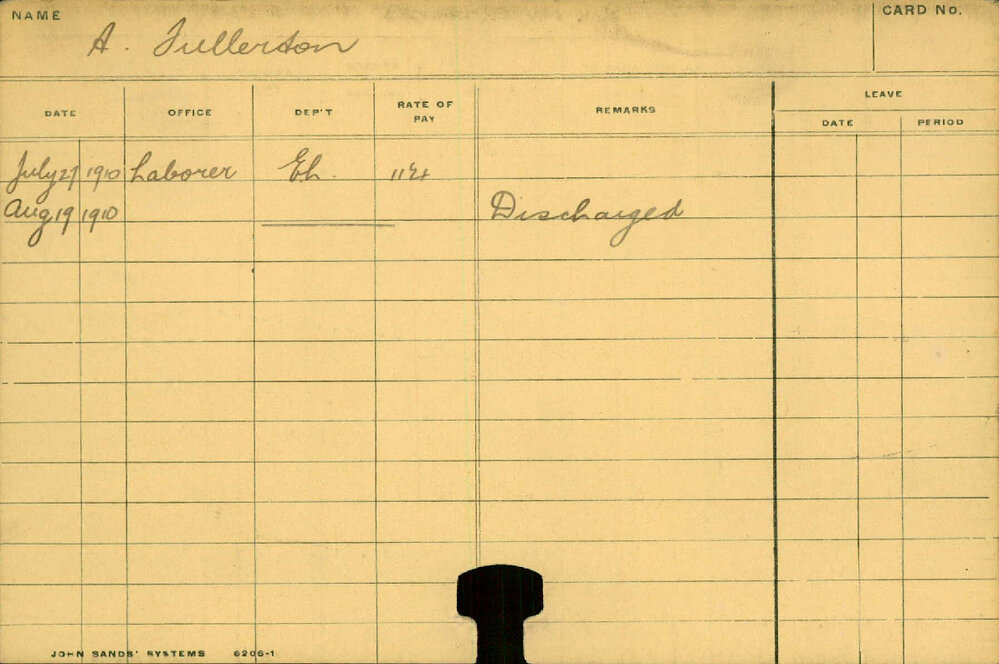 NAME
CARD No.
A. Fullerton
DATE OFFICE DEP'T RATE OF PAY REMARKS LEAVE
DATE PERIOD
July 27 1910 Laborer
Aug 19 1910 Discharged
JOHN SANDS' SYSTEMS 6206-1